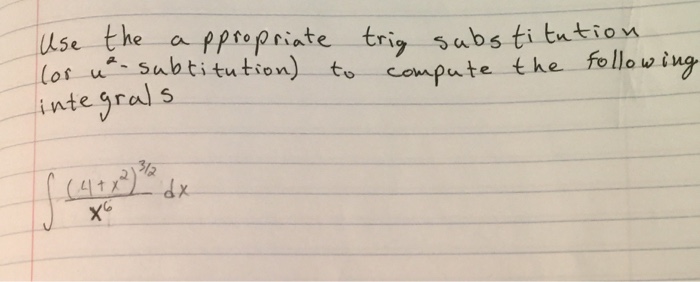 Use the appropriate trig substitution
(or u²-subtitution) to compute the following
integrals
∫ (4+x²)^3/2 / x⁶ dx